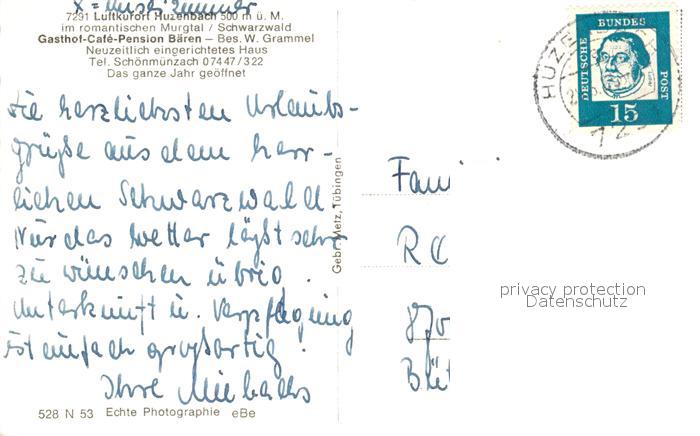 X = unser Zimmer
7291 Luftkurort Huzenbach 500 m ü. M.
im romantischen Murgtal / Schwarzwald
Gasthof-Café-Pension Bären – Bes. W. Grammel
Neuzeitlich eingerichtetes Haus
Tel. Schönmünzach 07447/322
Das ganze Jahr geöffnet
Die herzliebsten Urlaubs-
grüße aus dem herr-
lichen Schwarzwald.
Nur das Wetter läßt sehr
zu wünschen übrig.
Unterkunft u. Verpflegung
ist einfach großartig!
Ihre
528 N 53 Echte Photographie eBe
Gebr. Metz, Tübingen
DEUTSCHE BUNDES POST
15
HUZE
72
Fami
privacy protection
Datenschutz